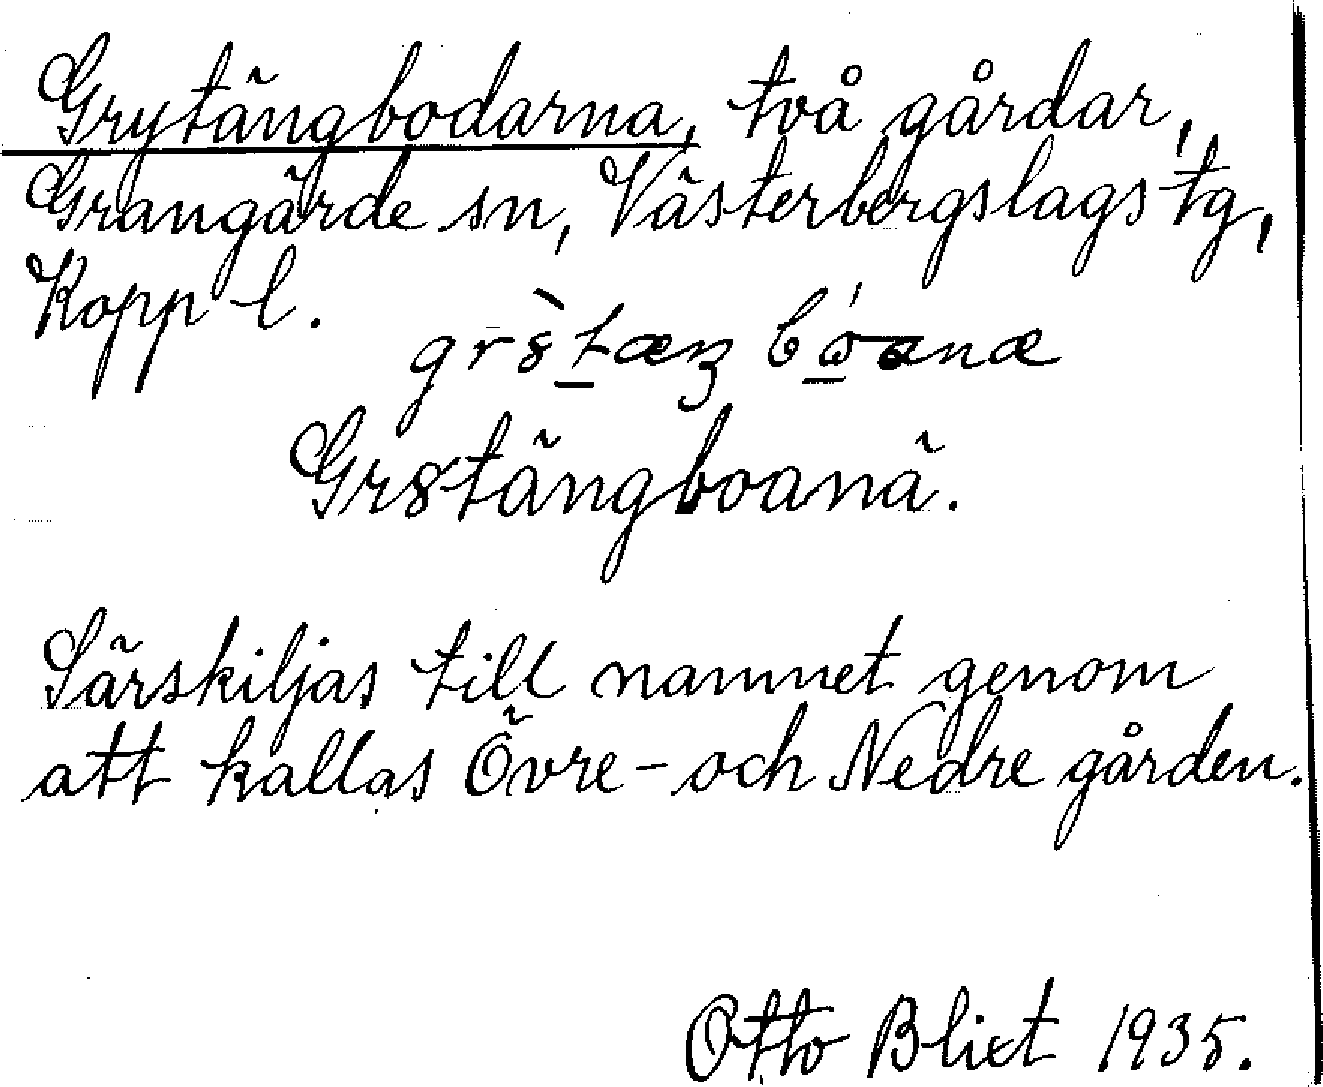 Grytängbodarna, två gårdar,
Grangärde sn, Västerbergslags tg,
Kopp l.
Gr8tängboanä.
Särskiljas till namnet genom
att kallas Övre- och Nedre gården.
Otto Blixt 1935.